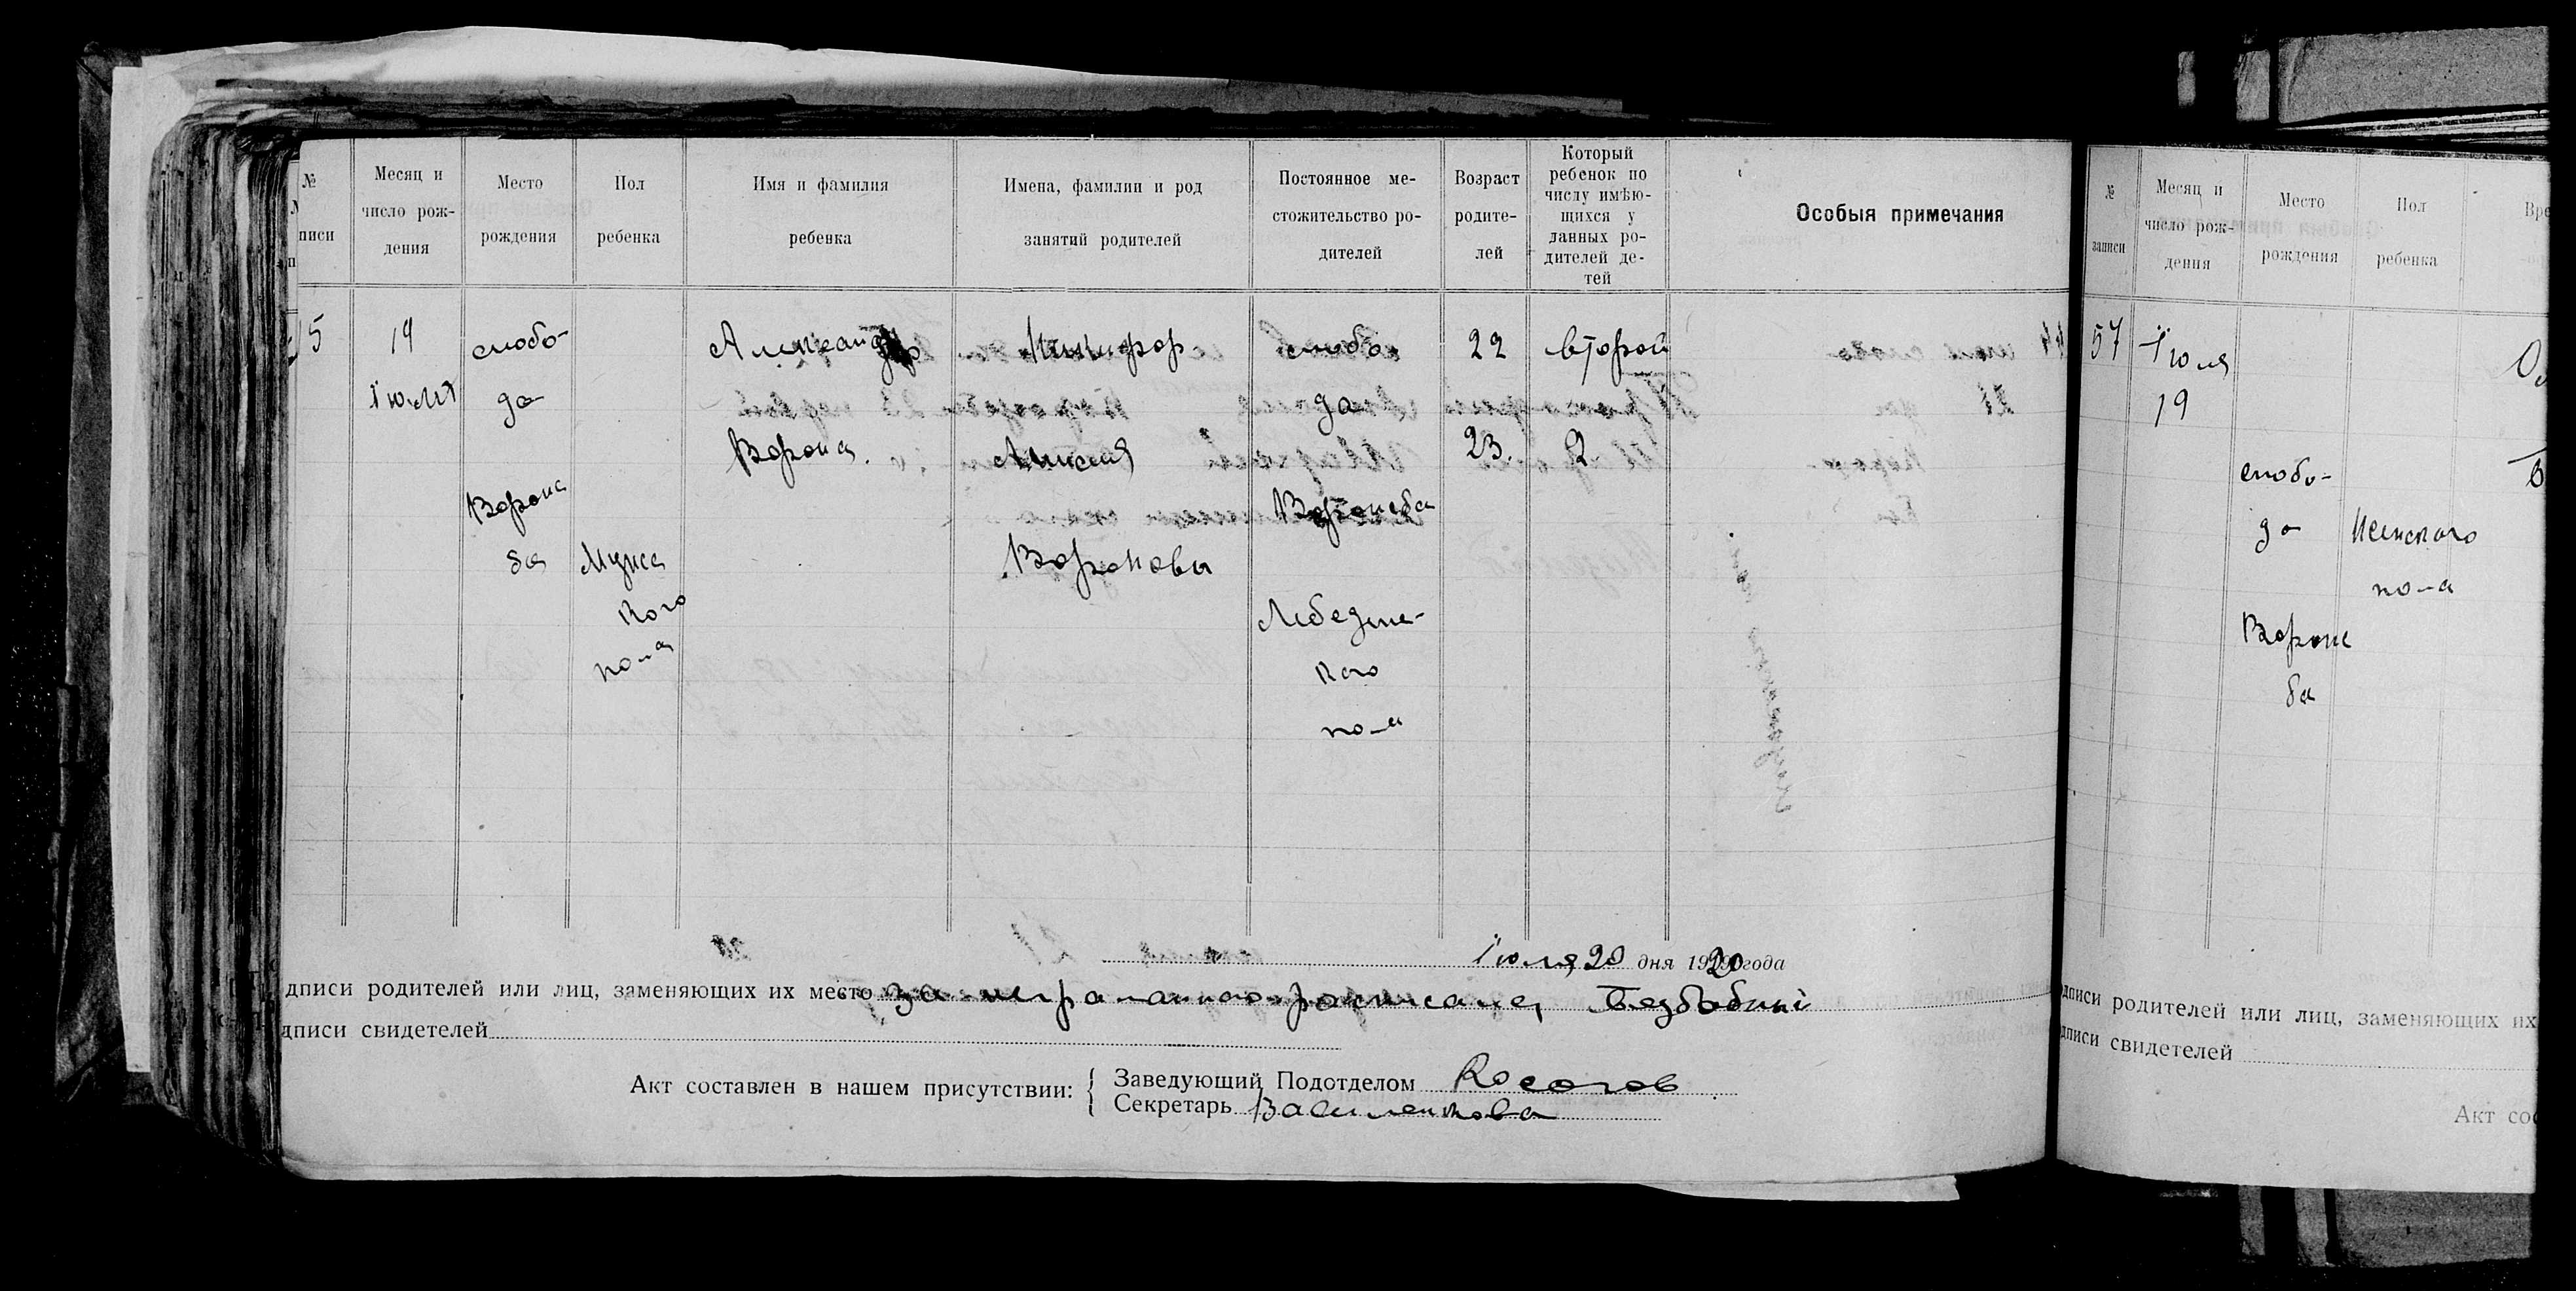 №
писи
Месяц и
число рож-
дения
Место
рождения
Пол
ребенка
Имя и фамилия
ребенка
Имена, фамилии и род
занятий родителей
Постоянное ме-
стожительство ро-
дителей
Возраст
родите-
лей
Который
ребенок по
числу имѣю-
щихся у
данных ро-
дителей де-
тей
Особыя примечания
5
19
Iюля
слобо-
да
Ворож
ба
Мужс
кого
пола
Александр
Ворона.
Никифор
Анисия
Вороновы
слобо
да
Ворожба
Лебединс-
кого
22
23.
второй
2
Iюля 20 дня 1920 года
дписи родителей или лиц, заменяющих их место за неграматного росписалсе,
дписи свидетелей
Акт составлен в нашем присутствии:
Заведующий Подотделом Косогов
Секретарь Василенкова
№
записи
Месяц и
число рож-
дения
Место
рождения
Пол
ребенка
57
Iюля
19
слобо-
да
Ворож
ба
Женского
пола
дписи родителей или лиц, заменяющих их
дписи свидетелей
Акт сос